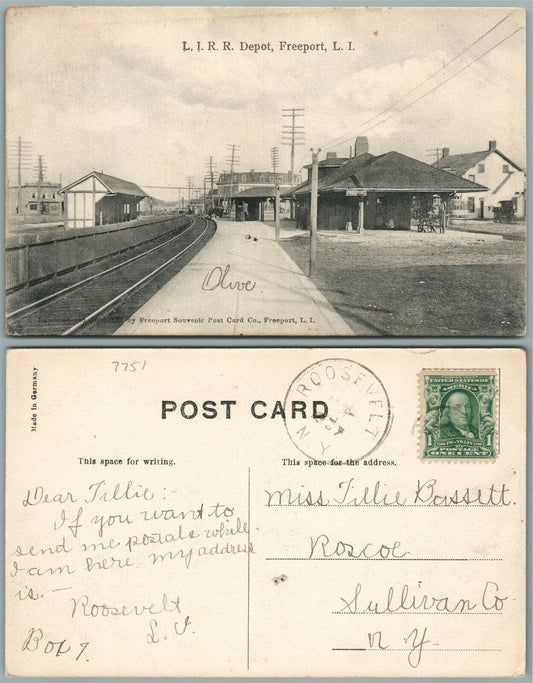 L. I. R. R. Depot, Freeport, L. I.
Olive.
by Freeport Souvenir Post Card Co., Freeport, L. I.
Made in Germany
7751
POST CARD
ROOSEVELT
N.Y.
This space for writing.
This space for the address.
UNITED STATES OF AMERICA
FRANKLIN
1 POSTAGE 1
ONE CENT
Dear Tillie :-
If you want to
send me postals while
I am here, my address
is. —
Roosevelt
L. I.
Box 7.
Miss Tillie Bassett.
Roscoe
Sullivan Co.
N. Y.